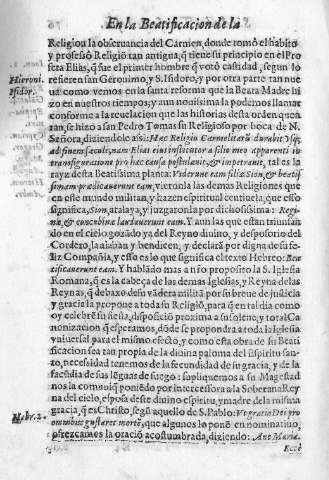 En la Beatificacion de la
Religiou la obseruancia del Carmen, donde tomò el habito
y professò Religiō tan antigua, q̃ tiene su principio en el Pro
feta Elias, q̃ fue el primer hombre q̃ votò castidad, segun lo
Hieroni.
refieren san Geronimo, y S. Isidoro, y por otra parte tan nue
Isidor.
ua como vemos en la santa reforma que la Beata Madre hi
zo en nuestros tiempos; y aun nouissima la podemos llamar
conforme a la reuelacion que las historias desta orden quen
tan, se hizo a san Pedro Tomas su Religioso por boca de N.
Señora, diziendole assi: Hæc Religio Carmelitarū durabit vsq;
ad finem sæculi, nam Elias eius institutor a filio meo apparenti in
transfiguratione pro hac causa postulauit, & impetrauit, tal es la
rayz desta Beatissima planta: Viderunt eam filiæ Sion, & beatis
simam prædicauerunt eam, vieronla las demas Religiones que
en este mundo militan, y hazen espiritual centinela, que esso
significa, Sion, atalaya, y juzgaronla por dichosissima: Regi-
næ, & concubinæ laudauerunt eam. Y aun las que estan triunfan
do en el cielo gozādo ya del Reyno diuino, y desposorio del
Cordero, la alaban y bendicen, y declarā por digna de su fe-
liz Compañia, y esso es lo que significa el texto Hebreo: Bea-
tificauerunt eam. Y hablādo mas a nr̃o proposito la S. Iglesia
Romana, q̃ es la cabeça de las demas Iglesias, y Reyna de las
Reynas, q̃ debaxo de su vādera militā por su breue de justicia
y gracia la propone a toda su Religiō, para q̃ en tal dia como
oy celebre su fiesta, disposiciō proxima a su solene, y total Ca
nonizacion q̃ esperamos, dōde se propondrà a toda la Iglesia
vniuersal para el mismo efeto, y como esta obra de su Beati
ficacion sea tan propia de la diuina paloma del Espiritu san-
to, necessidad tenemos de la fecundidad de su gracia, y de la
facundia de sus lēguas de fuego: supliquemos a su Magestad
nos la comuniq̃ poniēdo por intercessora a la Soberana Rey
na del cielo, esposa deste diuino espiritu, y madre de la misma
Hebr. 2.
gracia, q̃ es Christo, segū aquello de S. Pablo: Vt gratia Dei pro
omnibus gustaret mortē, que algunos lo ponē en nominatiuo,
ofrezcamos la oraciō acostumbrada, diziendo: Aue Maria.
Ecce